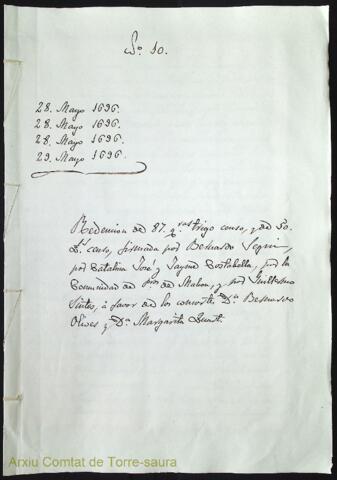 Nº 10.
28. Mayo 1696.
28. Mayo 1696.
28. Mayo 1696.
29. Mayo 1696.
Redencion de 87. qras trigo censo, y de 50.
Ls censo, firmada por Bernardo Segui,
por Catalina José y Jayme Costabella, por la
Comunidad de Pros de Mahon, y por Guillermo
Sintes, à favor de los consorts Dn Bernardo
Olives y Da Margarita
Arxiu Comtat de Torre-saura